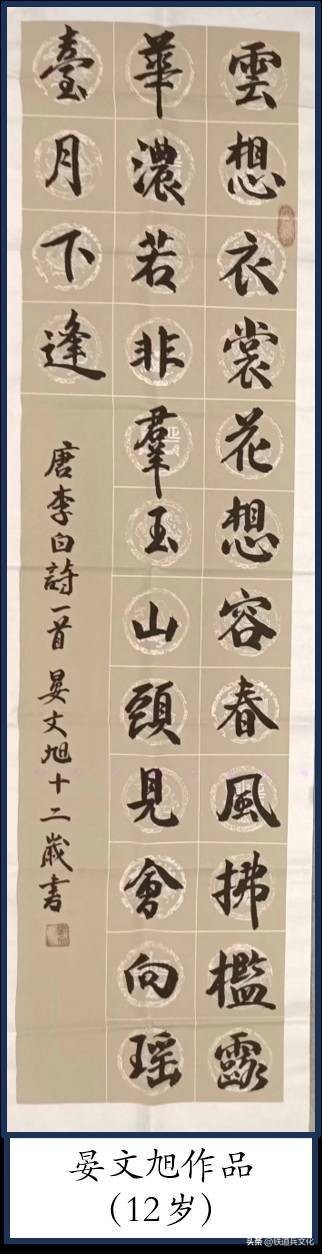 雲想衣裳花想容春風拂檻露
華濃若非羣玉山頭見會向瑶
臺月下逢
唐李白詩一首 晏文旭十二歲書
晏文旭作品
（12岁）
头条@铁道兵文化